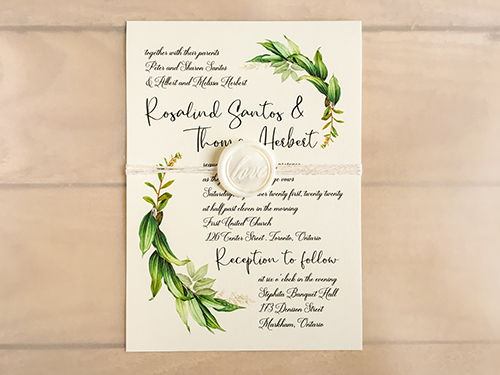 together with their parents
Peter and Sharon Santos
& Albert and Melissa Herbert
Rosalind Santos &
Herbert
love
as the vows
Saturday twenty first, twenty twenty
at half past eleven in the morning
First United Church
126 Center Street, Toronto, Ontario
Reception to follow
at six o'clock in the evening
Stephita Banquet Hall
173 Denison Street
Markham, Ontario